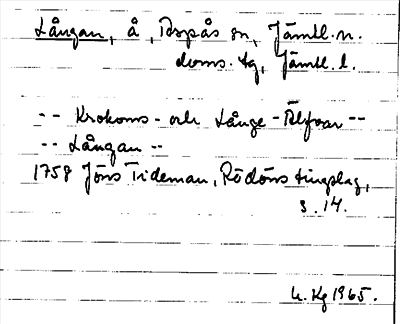 Långan, å, Aspås sn, Jämtl. n.
doms. tg, Jämtl. l.
-- Krokoms- och Långe-Älfvar --
-- Långan --
1758 Jöns Tideman, Rödöns tingslag,
s. 14.
U. Kg 1965.